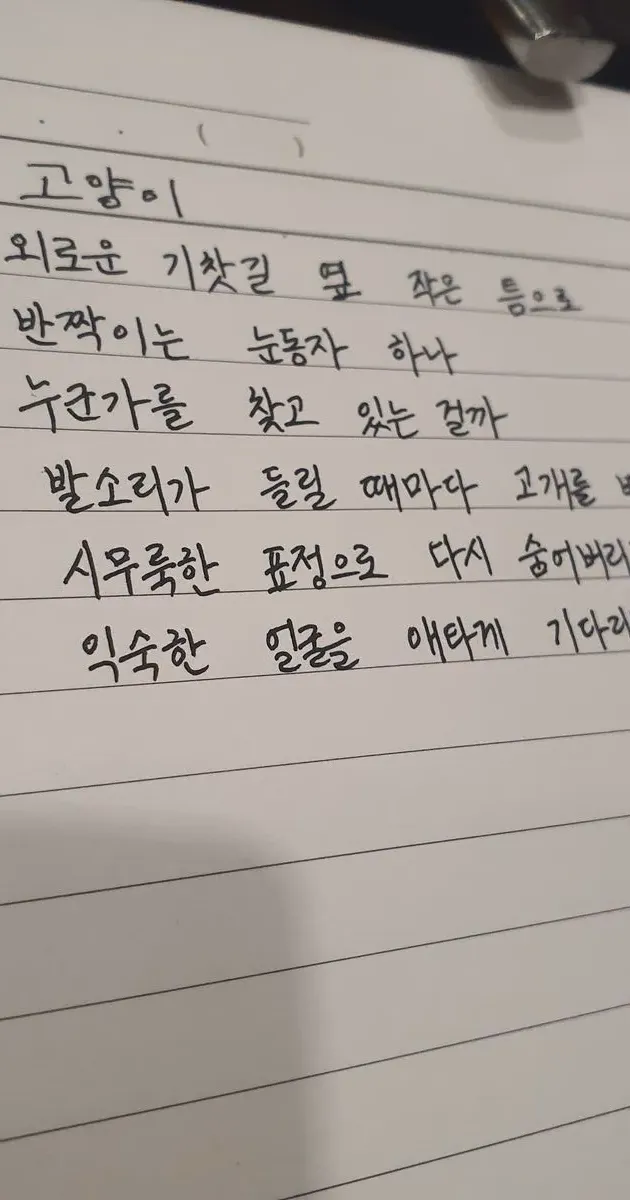 고양이
외로운 기찻길 옆 작은 틈으로
반짝이는 눈동자 하나
누군가를 찾고 있는 걸까
발소리가 들릴 때마다 고개를
시무룩한 표정으로 다시 숨어버리
익숙한 얼굴을 애타게 기다리